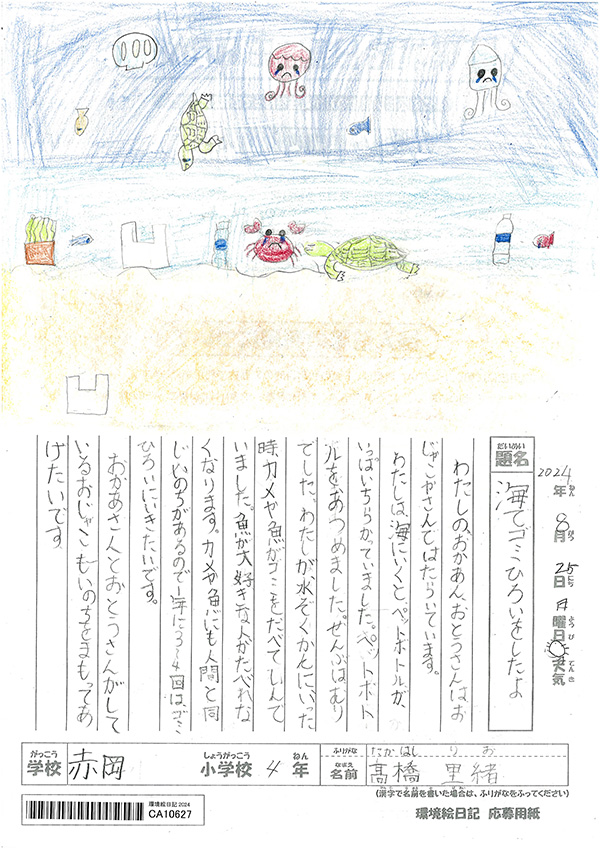 2024年ねん
8月がつ
25日にち
日曜日ようび
天気てんき
だいめい
題名
海でゴミひろいをしたよ
わたしの、おかあん、おとうさんはお
じゃこやさんではたらいています。
わたしは、海にいくと、ペットボトルが、
いっぱいちらかっていました。ペットボト
ルをあつめました。ぜんぶはむり
でした、わたしが水ぞくかんにいった
時、カメや魚がゴミをたべてしんで
いました。魚が大好きな人がたべれな
くなります。カメや魚にも人間と同
じいのちがあるので一年に3~4回は、ゴミ
ひろいにいきたいです。
おかあさんとおとうさんがして
いるおじゃこもいのちをまもってあ
げたいです。
がっこう
学校
赤岡
しょうがっこう
小学校
4
ねん
年
ふりがな
たかはし りお
なまえ
名前
髙橋 里緒
(漢字で名前を書いた場合は、ふりがなをふってください)
環境絵日記2024
CA10627
環境絵日記 応募用紙